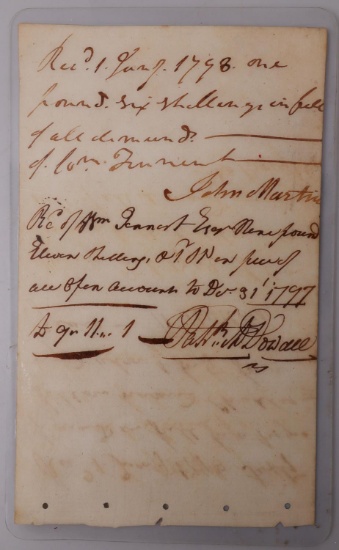 Rec^d. 1. Jany. 1798. one
pound. six shillings in full
of all demands.
of Wm. Tennent
John Martin
Rc^d of Wm Tennent Esqr Nine pound
Eleven Shillings & in full of
all open accounts to Dec. 31^t 1797
£ 9 " 11 " 1 Pat^k McDowall